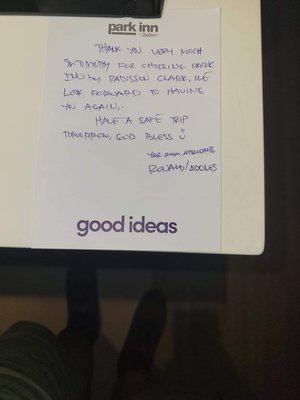 park inn
by Radisson
THANK YOU VERY MUCH
FOR CHOOSING PARK
INN by RADISSON CLARK, WE
LOOK FORWARD TO HAVING
YOU AGAIN..
HAVE A SAFE TRIP
TOMORROW, GOD BLESS
YOUR ROOM ATTENDANTS,
RONALD/
good ideas